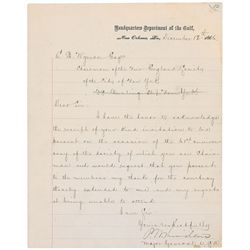 Headquarters Department of the Gulf,
New Orleans, La., December 12th 186
Wyman Esqr
Chairman of the New England Society
of the City of New York
Dear Sir:
I have the honor to acknowledge
the receipt of your kind invitation to be
present on the occasion of the
of the society of which you are Chair-
man and would request that you present
to the members my thanks for the courtesy
thereby extended to me and my regrets
at being unable to attend.
I am Sir
Yours respectfully
P. H. Sheridan
Major General U.S.A.